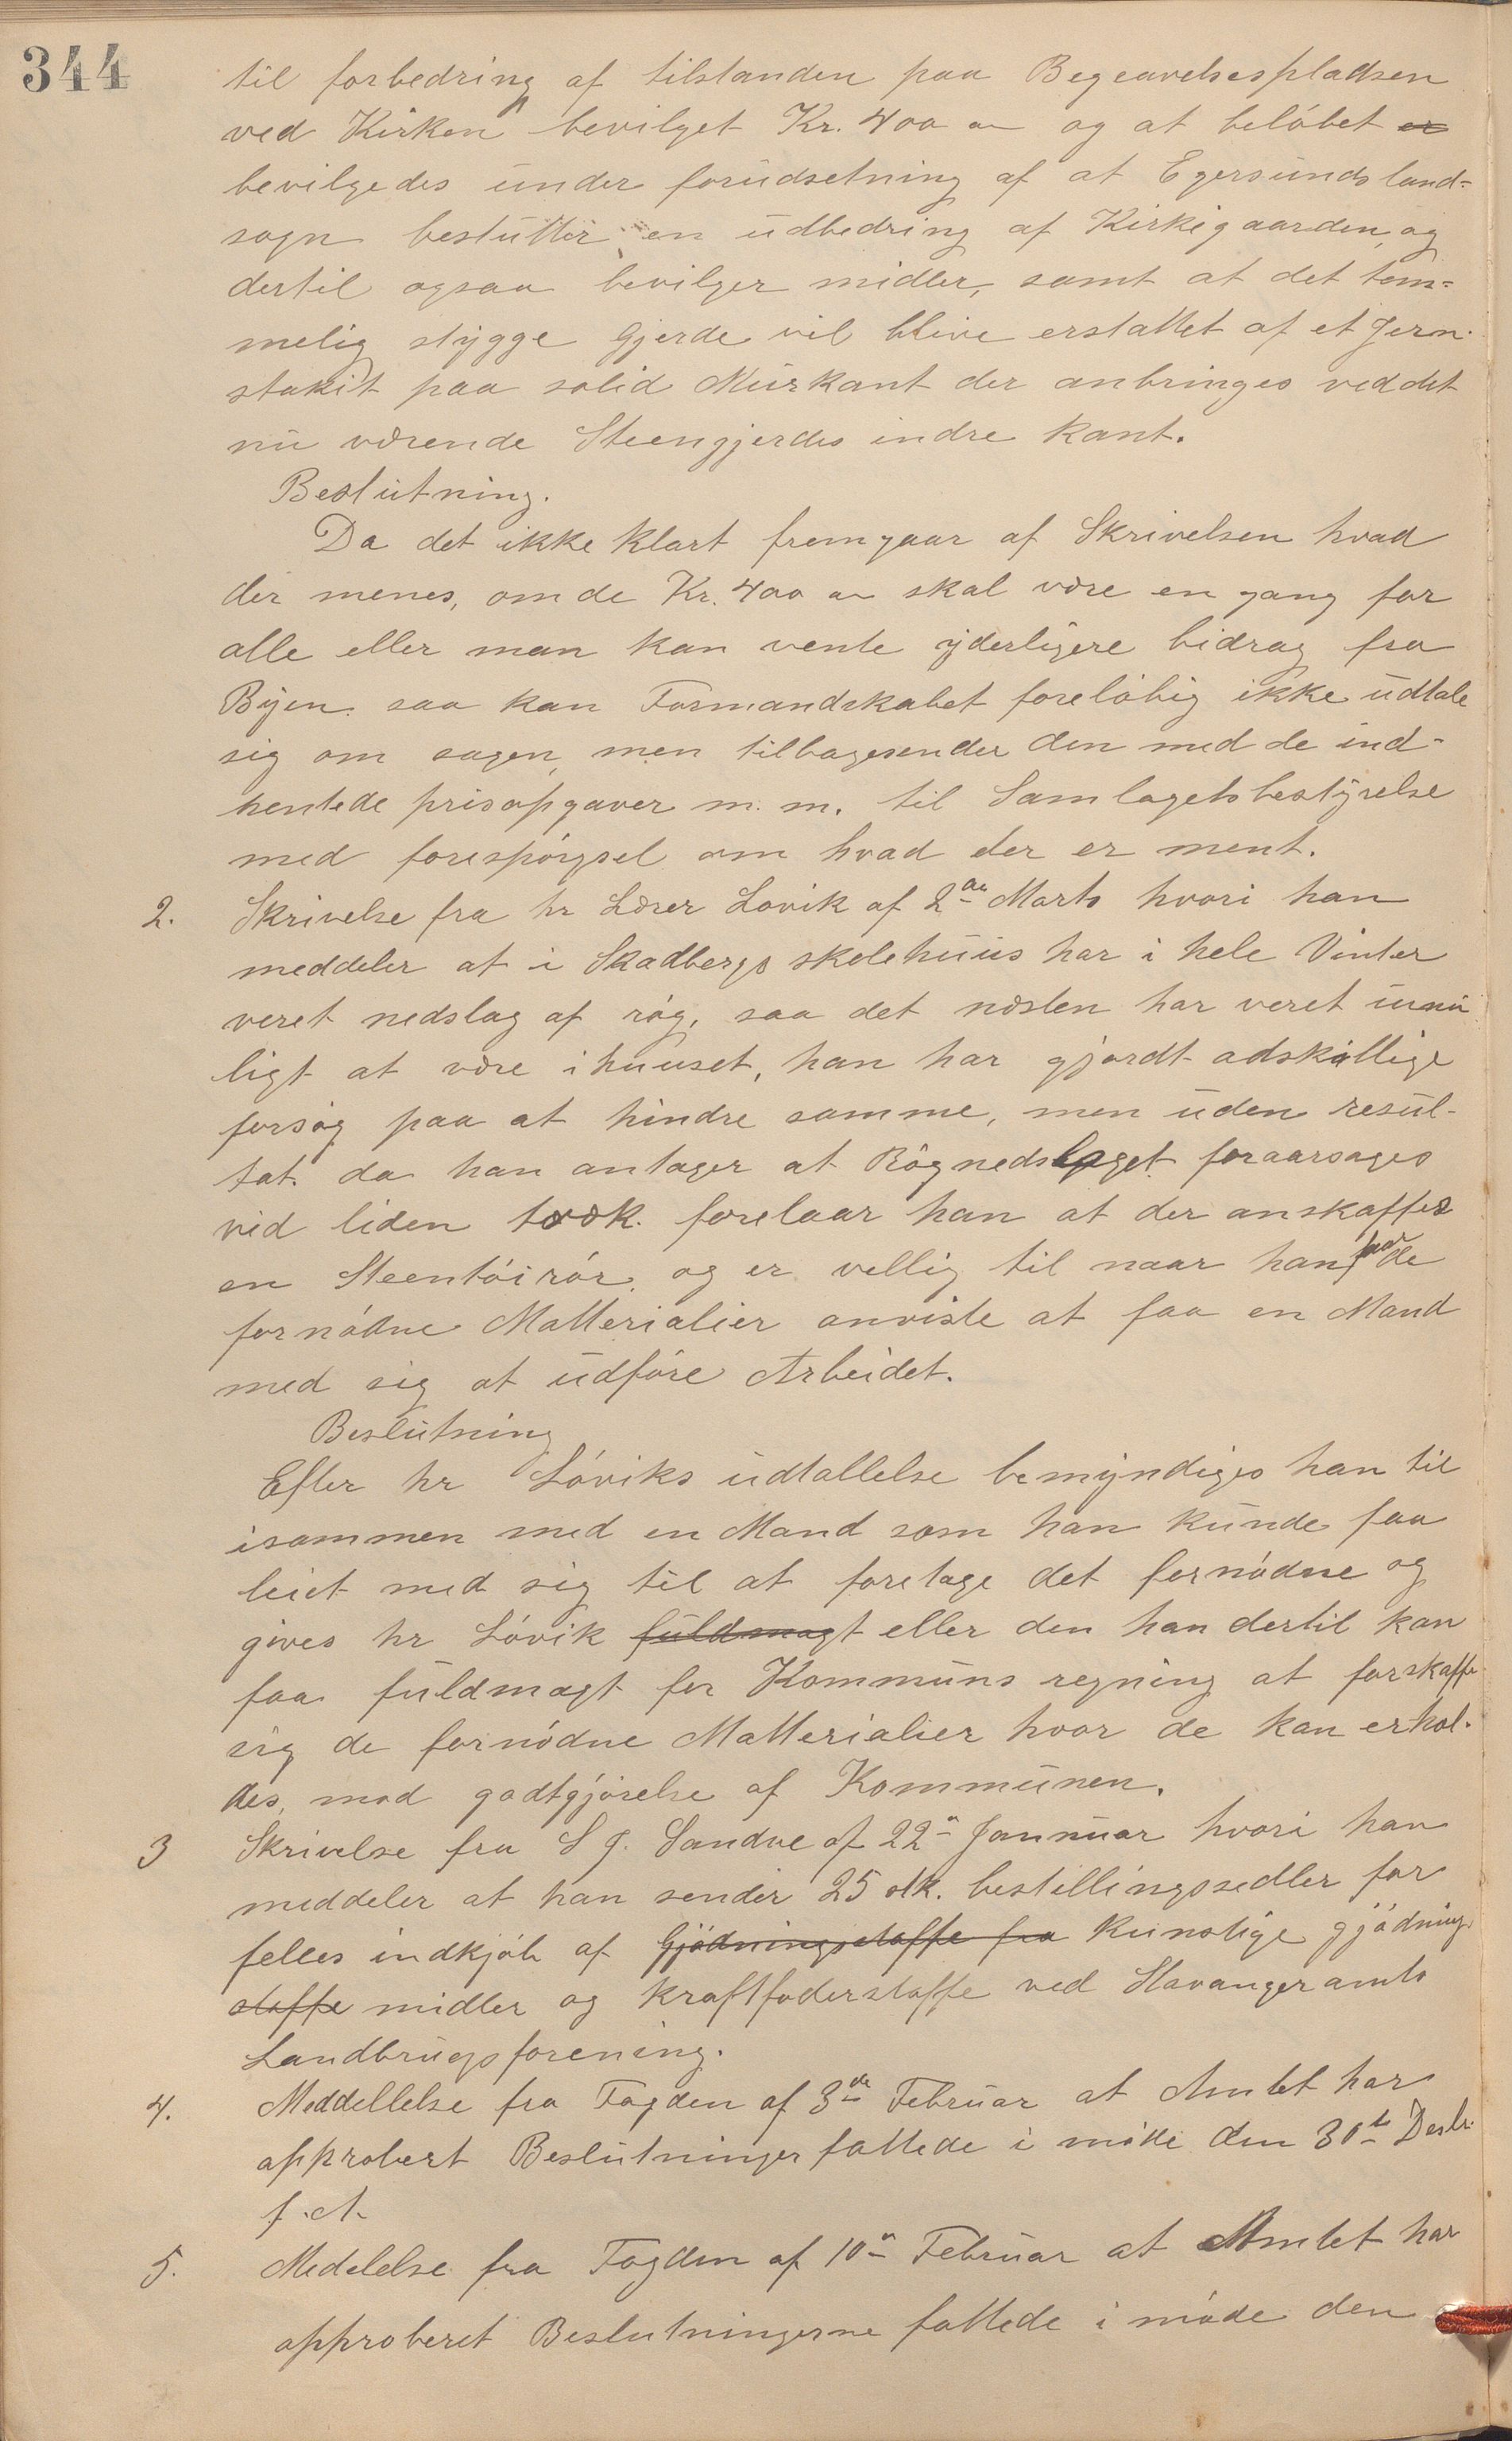 344
til forbedring af tilstanden paa Begravelsespladsen
ved Kirken bevilget Kr. 400 og at beløbet er
bevilgedes under forudsetning af at Egersunds land-
sogn beslutter en udbedring af Kirkegaarden, og
dertil ogsaa bevilger midler, samt at det tem-
melig stygge Gjerde vil blive erstattet af et Jern-
stakit paa solid Murkant der anbringes ved det
nu værende Steengjerdes indre kant.
Beslutning.
Da det ikke klart fremgaar af Skrivelsen hvad
der menes, om de Kr. 400 skal være en gang for
alle eller man kan vente yderligere bidrag fra
Byen saa kan Formandskabet foreløbig ikke udtale
sig om sagen, men tilbagesender den med de ind-
hentede prisopgaver m. m. til Samlagets bestyrelse
med forespørgsel om hvad der er ment.
2. Skrivelse fra hr Lærer Løvik af 2de Marts hvori han
meddeler at i Skadbergs skolehuus har i hele Vinter
veret nedslag af røg, saa det næsten har veret umu
ligt at være i huuset, han har gjordt adskillige
forsøg paa at hindre samme, men uden resul-
tat. da han antager at Røgnedslaget foraarsages
ved liden træk. forelaar han at der anskaffes
en Steentøirør, og er vellig til naar han faar de
fornødne Matterialier anviste at faa en Mand
med sig at udføre Arbeidet.
Beslutning
Efter hr Løviks udtallelse bemyndiges han til
isammen med en Mand som han kunde faa
leiet med sig til at foretage det fornødne og
gives hr Løvik fuldmagt eller den han dertil kan
faa fuldmagt for Kommuns regning at forskaffe
sig de fornødne Matterialier hvor de kan erhol-
des, mod godtgjørelse af Kommunen.
3 Skrivelse fra S J. Sandve af 22de Januar hvori han
meddeler at han sender 25 stk. bestillingssedler for
felles indkjøb af Gjødningsstoffe fra Kunstige gjødnings
stoffe midler og kraftfoderstoffe ved Stavanger amts
Landbrugsforening.
4. Meddellelse fra Fogden af 3de Februar at Amtet har
approbert Beslutninger fattede i møde den 30te Desbr.
f. A.
5. Medelelse fra Fogden af 10de Februar at Amtet har
approberet Beslutningerne fattede i møde den